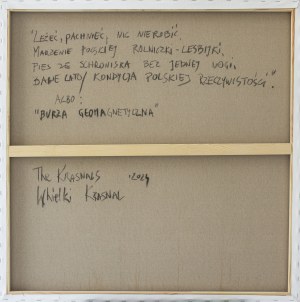 "LEŻEĆ, PACHNIEĆ, NIC NIEROBIĆ.
MARZENIE POLSKIEJ ROLNICZKI-LESBIJKI.
PIES ZE SCHRONISKA BEZ JEDNEJ NOGI.
LUDY KONDYCJA POLSKIEJ RZECZYWISTOŚCI."
ALBO:
"BURZA GEOMAGNETYCZNA"
THE KRASNALS .2024
Whielki KRASNAL